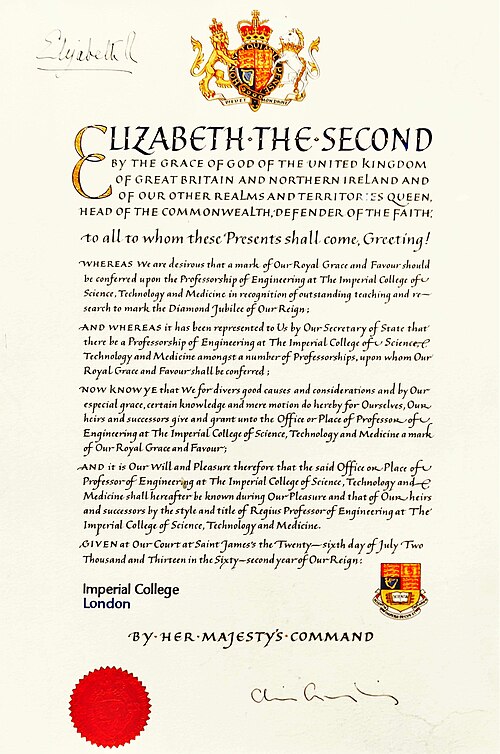 Elizabeth R
DIEU ET MON DROIT
ELIZABETH·THE·SECOND
BY THE GRACE OF GOD OF THE UNITED KINGDOM
OF GREAT BRITAIN AND NORTHERN IRELAND AND
OF OUR OTHER REALMS AND TERRITORIES QUEEN,
HEAD OF THE COMMONWEALTH, DEFENDER OF THE FAITH,
to all to whom these Presents shall come, Greeting!
WHEREAS We are desirous that a mark of Our Royal Grace and Favour should
be conferred upon the Professorship of Engineering at The Imperial College of
Science, Technology and Medicine in recognition of outstanding teaching and re-
search to mark the Diamond Jubilee of Our Reign;
AND WHEREAS it has been represented to Us by Our Secretary of State that
there be a Professorship of Engineering at The Imperial College of Science, &
Technology and Medicine amongst a number of Professorships, upon whom Our
Royal Grace and Favour shall be conferred;
NOW KNOW YE that We for divers good causes and considerations and by Our
especial grace, certain knowledge and mere motion do hereby for Ourselves, Our
heirs and successors give and grant unto the Office or Place of Professor of
Engineering at The Imperial College of Science, Technology and Medicine a mark
of Our Royal Grace and Favour;
AND it is Our Will and Pleasure therefore that the said Office or Place of
Professor of Engineering at The Imperial College of Science, Technology and
Medicine shall hereafter be known during Our Pleasure and that of Our heirs
and successors by the style and title of Regius Professor of Engineering at The
Imperial College of Science, Technology and Medicine.
GIVEN at Our Court at Saint James's the Twenty-sixth day of July Two
Thousand and Thirteen in the Sixty-second year of Our Reign:
Imperial College
London
BY·HER·MAJESTY'S·COMMAND